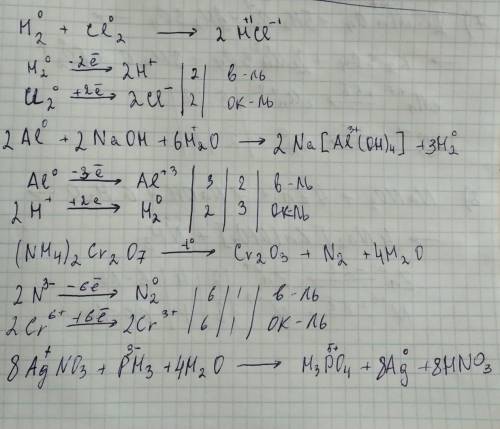 H₂⁰ + Cl₂⁰ ⟶ 2 H⁺¹Cl⁻¹
H₂⁰ —-2ē→ 2H⁺ | 2 | в-ль
Cl₂⁰ —+2ē→ 2Cl⁻ | 2 | ок-ль
2Al⁰ + 2NaOH + 6H₂⁺O ⟶ 2Na[Al³⁺(OH)₄] + 3H₂⁰
Al⁰ —-3ē→ Al⁺³ | 3 | 2 | в-ль
2H⁺ —+2ē→ H₂⁰ | 2 | 3 | ок-ль
(NH₄)₂Cr₂O₇ —t⁰→ Cr₂O₃ + N₂ + 4H₂O
2N³⁻ —-6ē→ N₂⁰ | 6 | 1 | в-ль
2Cr⁶⁺ —+6ē→ 2Cr³⁺ | 6 | 1 | ок-ль
8Ag⁺NO₃ + P³⁻H₃ + 4H₂O ⟶ H₃P⁵⁺O₄ + 8Ag⁰ + 8HNO₃